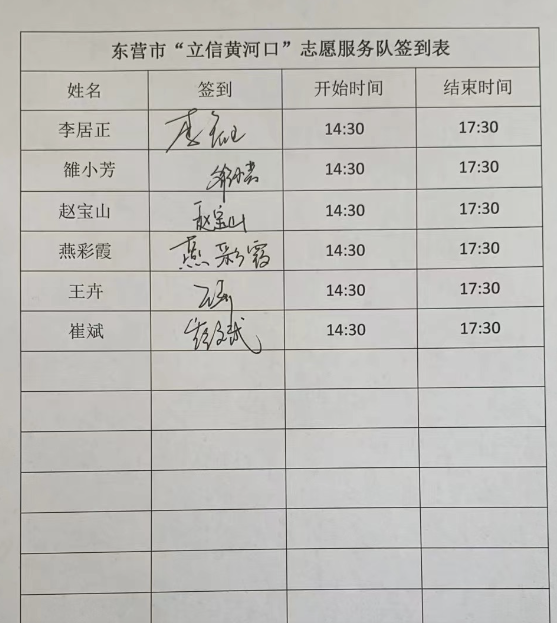 东营市“立信黄河口”志愿服务队签到表
姓名 签到 开始时间 结束时间
李居正 14:30 17:30
雒小芳 14:30 17:30
赵宝山 赵宝山 14:30 17:30
燕彩霞 燕彩霞 14:30 17:30
王卉 14:30 17:30
崔斌 14:30 17:30